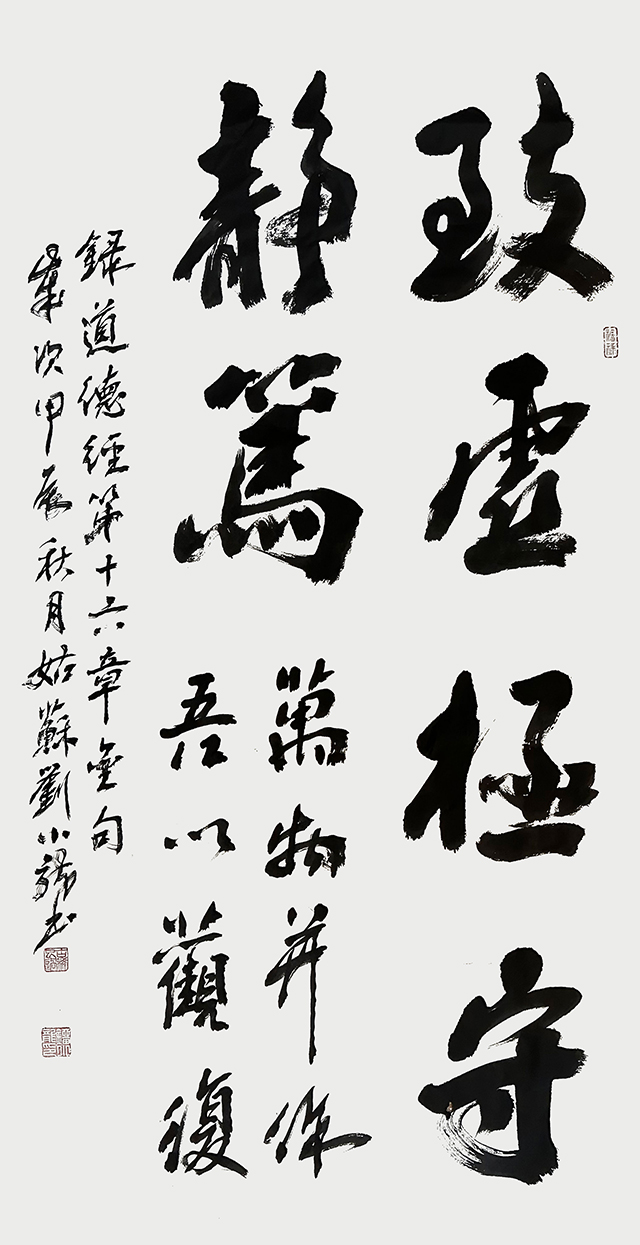 致虛極守
靜篤
萬物并作
吾以觀復
錄道德經第十六章金句
歲次甲辰秋月姑蘇劉小龍書